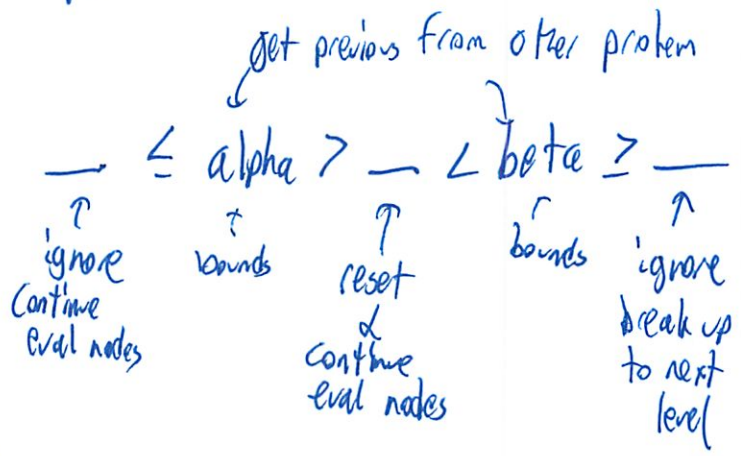 get previous from other problem
__ ≤ alpha > __ < beta ≥ __
ignore
Continue
eval nodes
bounds
reset
α
continue
eval nodes
bounds
ignore
break up
to next
level